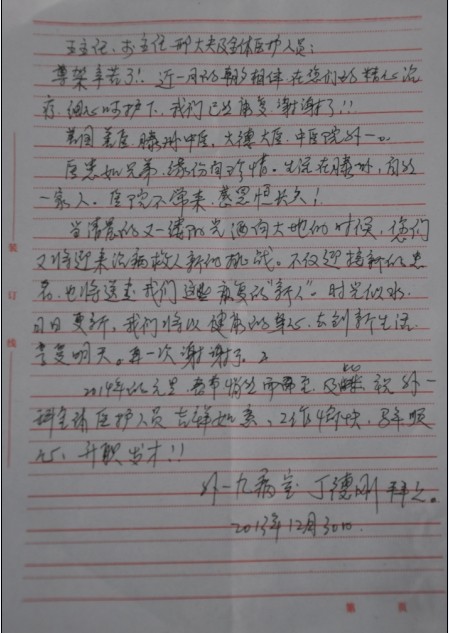 王主任、李主任 邢大夫及全体医护人员:
尊敬辛苦了! 近一月的朝夕相伴,在您们的精心治
疗、细心呵护下,我们已经康复 谢谢了!!!
美国美医,滕州中医,大德大医,中医院外一。
医患如兄弟,缘份自珍惜。生活在滕州,同为
一家人。医院不便来,慕思恒长久!
当清晨的又一缕阳光洒向大地的时候,您们
又将迎来治病救人新的挑战。不仅迎接新的患
者,也将送走我们这些康复的“新人”。时光似水,
日日更新,我们将以健康的身心,去创新生活
享受明天。再一次谢谢了。
2014年的元旦 春节悄然而至,祝外一
科全体医护人员 吉祥如意、工作愉快、马年顺
心、升职发才!!
外一九病室 丁德刚 拜上。
2013年12月30日.
装
订
线
第 页